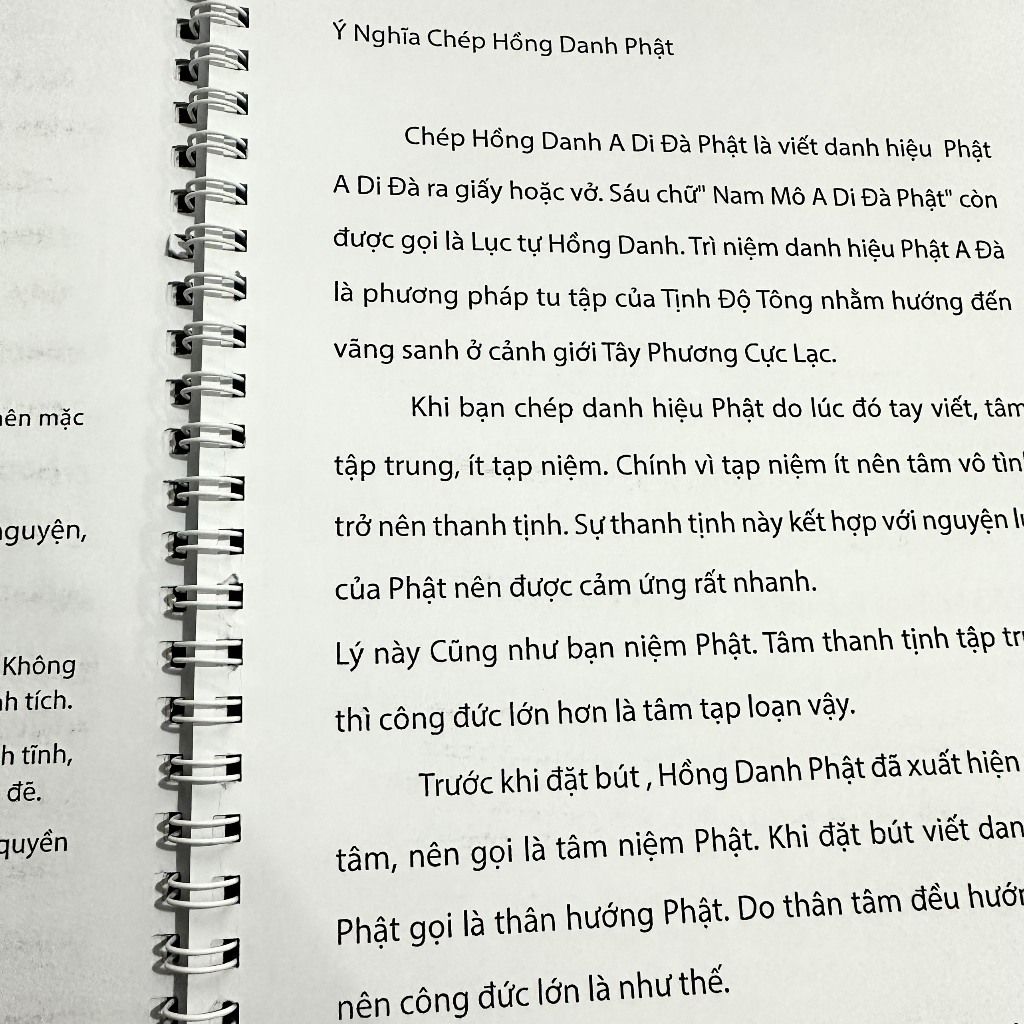 mặc
Không
tích.
tĩnh,
đẽ.
quyền
Ý Nghĩa Chép Hồng Danh Phật
Chép Hồng Danh A Di Đà Phật là viết danh hiệu Phật
A Di Đà ra giấy hoặc vở. Sáu chữ" Nam Mô A Di Đà Phật" còn
được gọi là Lục tự Hồng Danh. Trì niệm danh hiệu Phật A Đà
là phương pháp tu tập của Tịnh Độ Tông nhằm hướng đến
vãng sanh ở cảnh giới Tây Phương Cực Lạc.
Khi bạn chép danh hiệu Phật do lúc đó tay viết, tâm
tập trung, ít tạp niệm. Chính vì tạp niệm ít nên tâm vô
trở nên thanh tịnh. Sự thanh tịnh này kết hợp với nguyện
của Phật nên được cảm ứng rất nhanh.
Lý này Cũng như bạn niệm Phật. Tâm thanh tịnh tập
thì công đức lớn hơn là tâm tạp loạn vậy.
Trước khi đặt bút , Hồng Danh Phật đã xuất hiện
tâm, nên gọi là tâm niệm Phật. Khi đặt bút viết
Phật gọi là thân hướng Phật. Do thân tâm đều
nên công đức lớn là như thế.